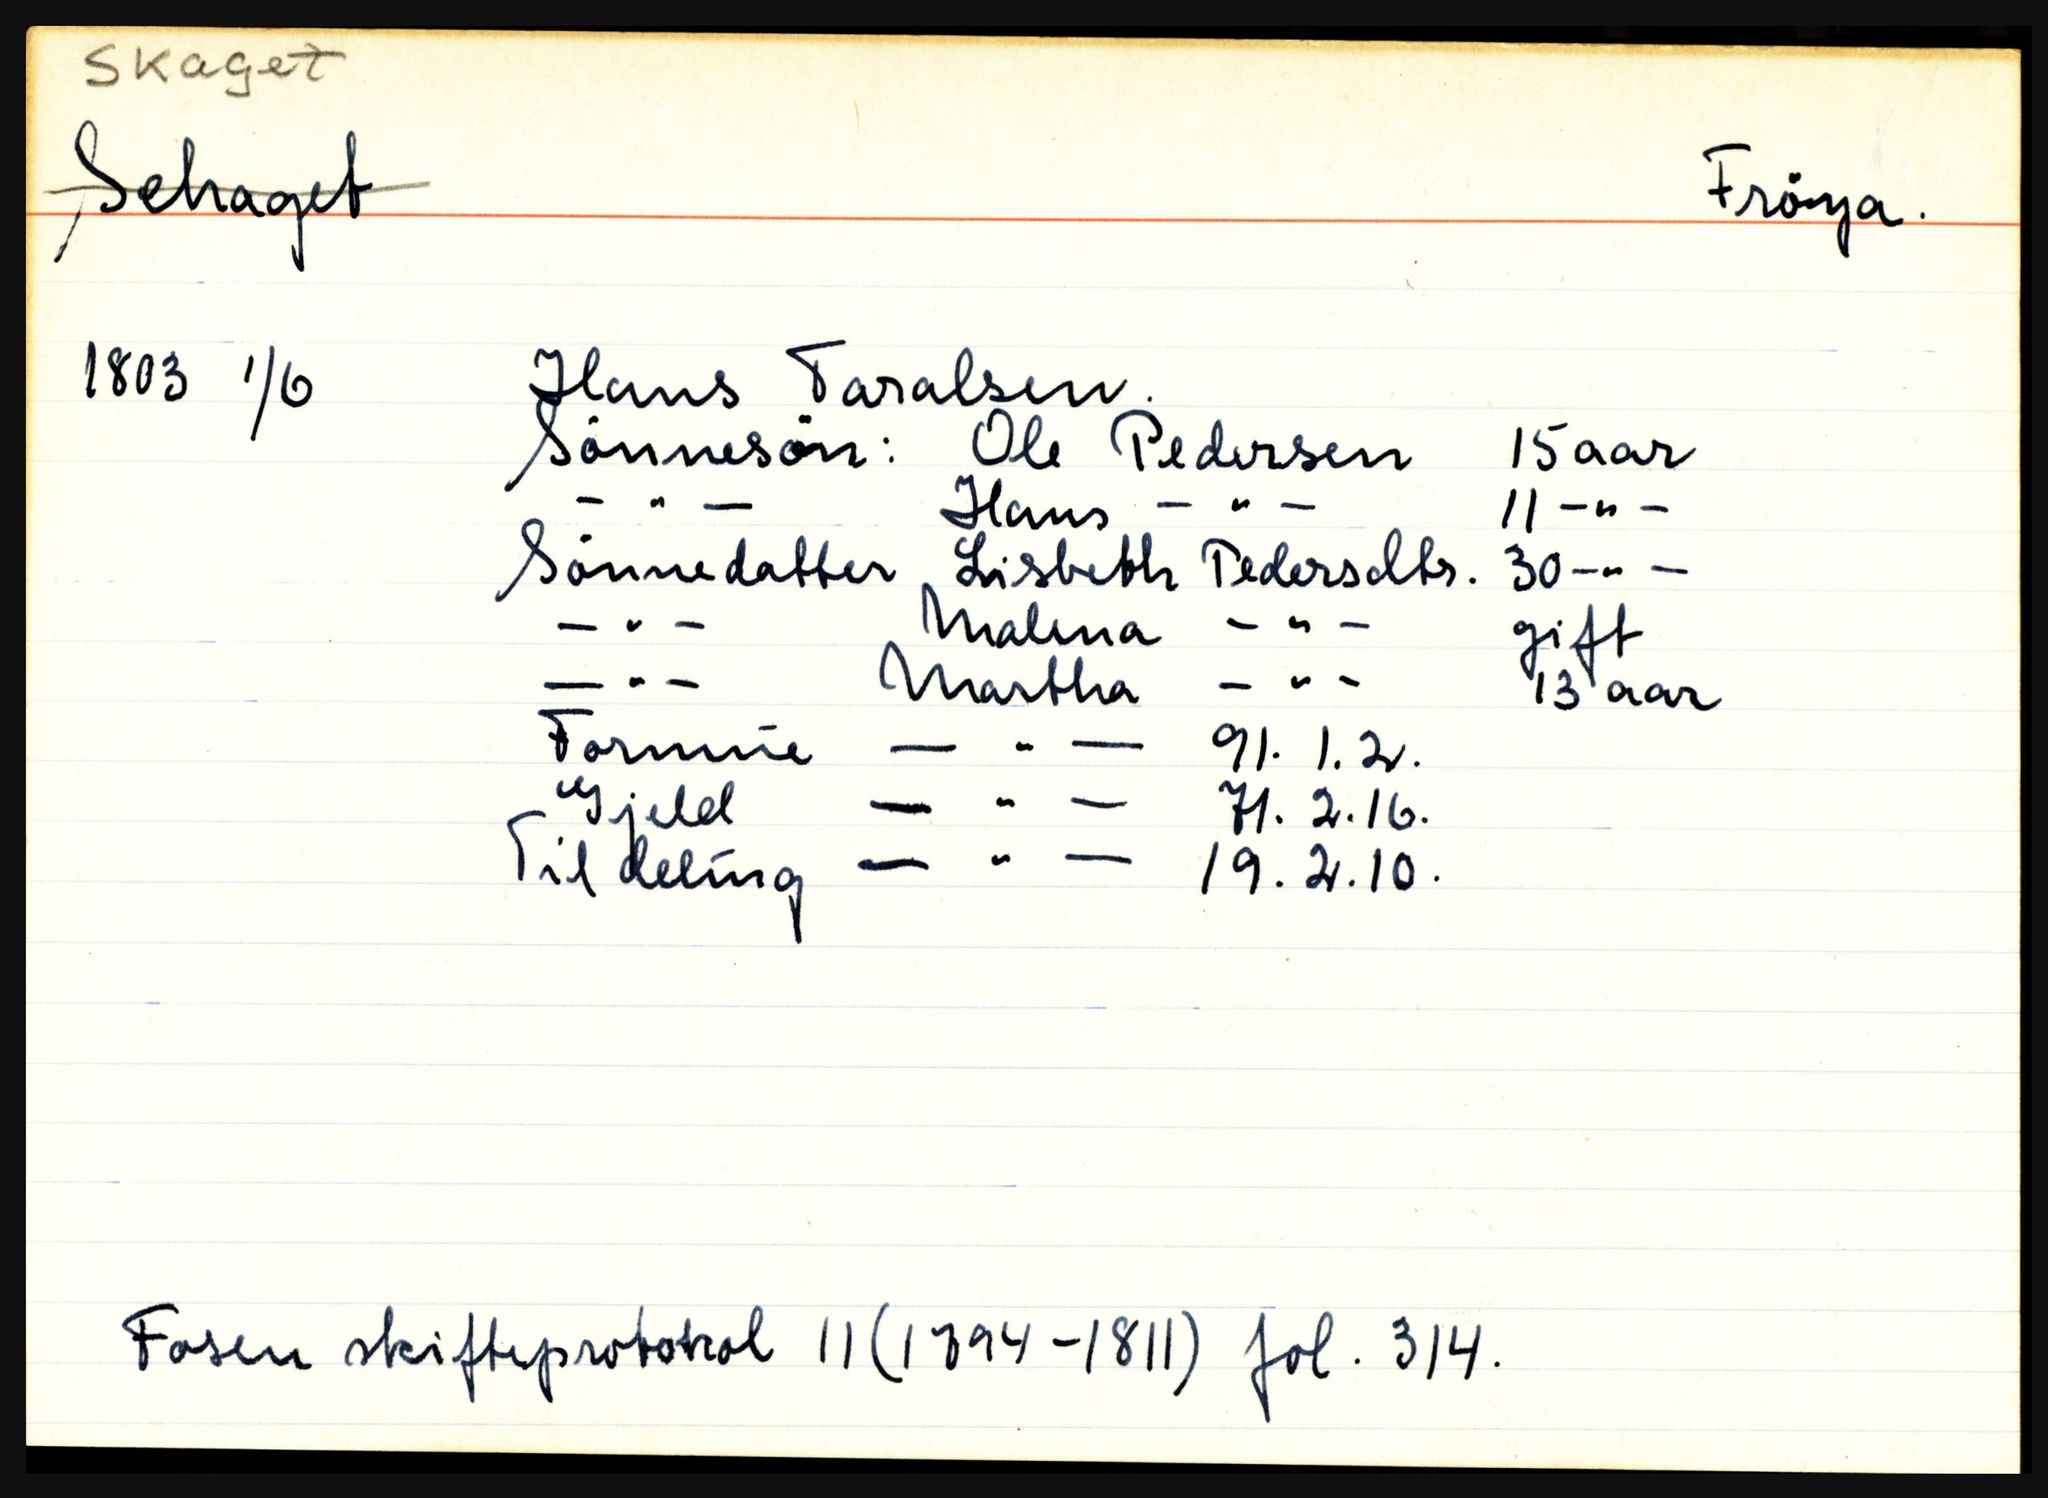 Skaget
Schaget Fröya.
1803 1/6 Hans Taralsen.
Sönnesön: Ole Pedersen 15 aar
– " – Hans – " – 11 – " –
Sönnedatter Lisbeth Pedersdtr. 30 – " –
– " – Malena – " – gift
– " – Martha – " – 13 aar
Formue – " – 91. 1. 2.
Gjeld – " – 71. 2. 16.
Til deling – " – 19. 2. 10.
Fosen skifteprotokol 11 (1794–1811) fol. 314.